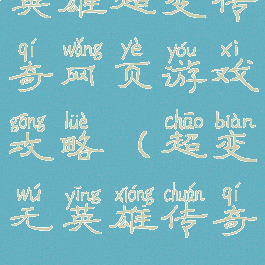 英雄超变传
qí wǎng yè yóu xì
奇网页游戏
gōng lüè chāo biàn
攻略(超变
wú yīng xióng chuán qí
无英雄传奇